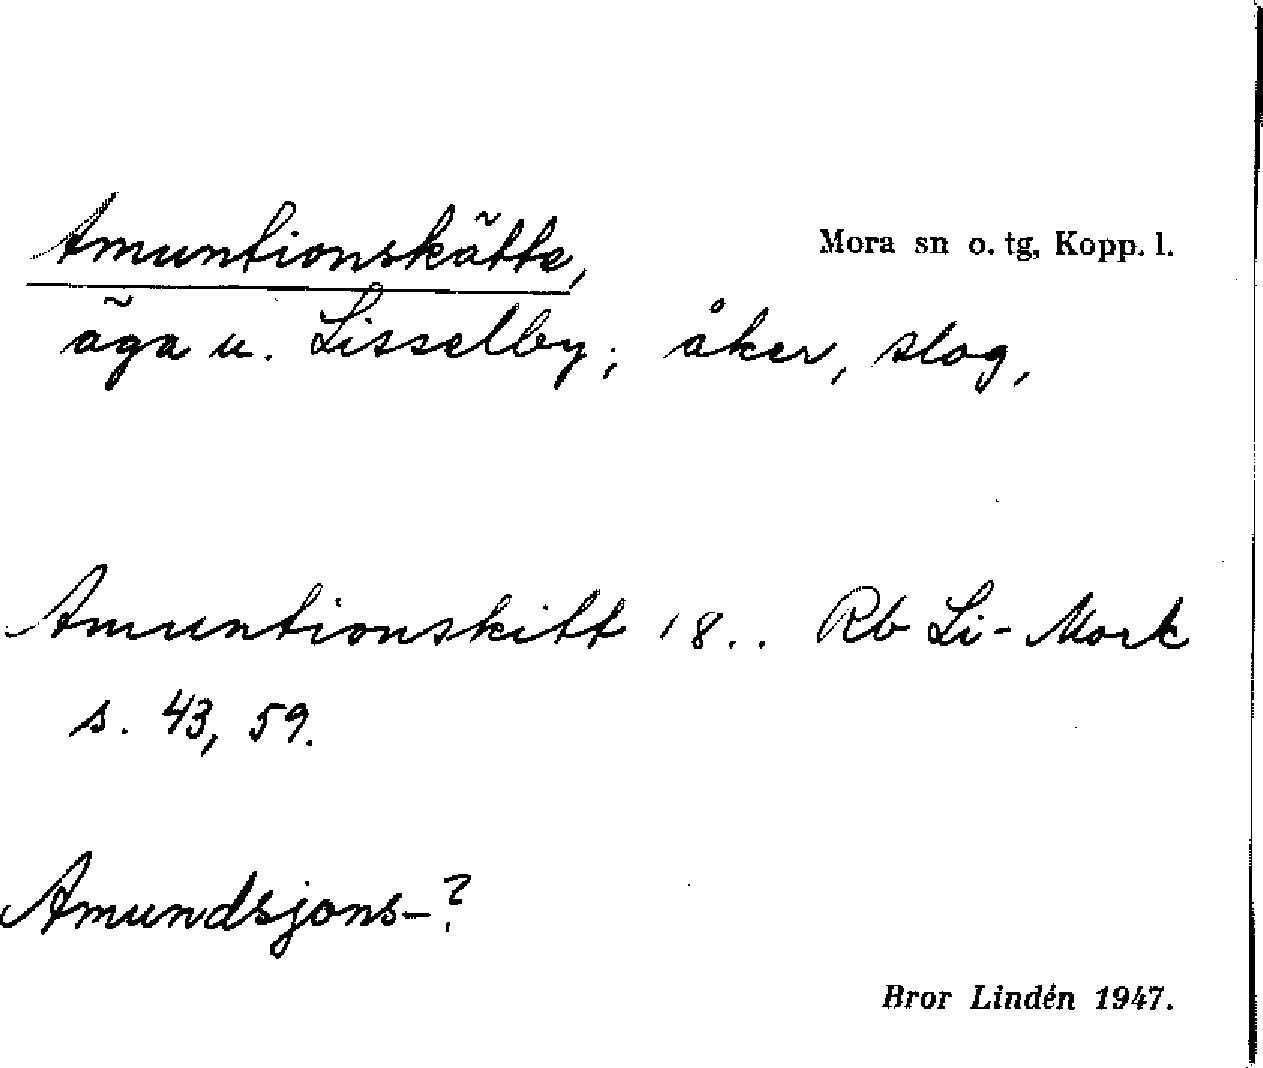 Amuntionskätte,
Mora sn o. tg, Kopp. l.
äga u. Lisselby; åker, slog,
Amuntionskitt 18.. Rb Li-Mork
s. 43, 59.
Amundsjons-?
Bror Lindén 1947.